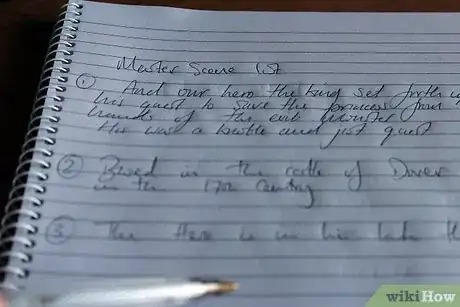 Master Scene list
① And our hero the king set forth
his quest to save the princess from
hands of the evil monster
He was a noble and just quest
② Based in the castle of Dover
in the 17th Century
③ The Hero is in his late
wikiHow